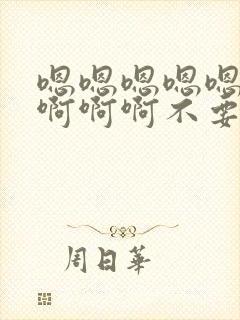 嗯嗯嗯嗯嗯
啊啊啊不要
周日华